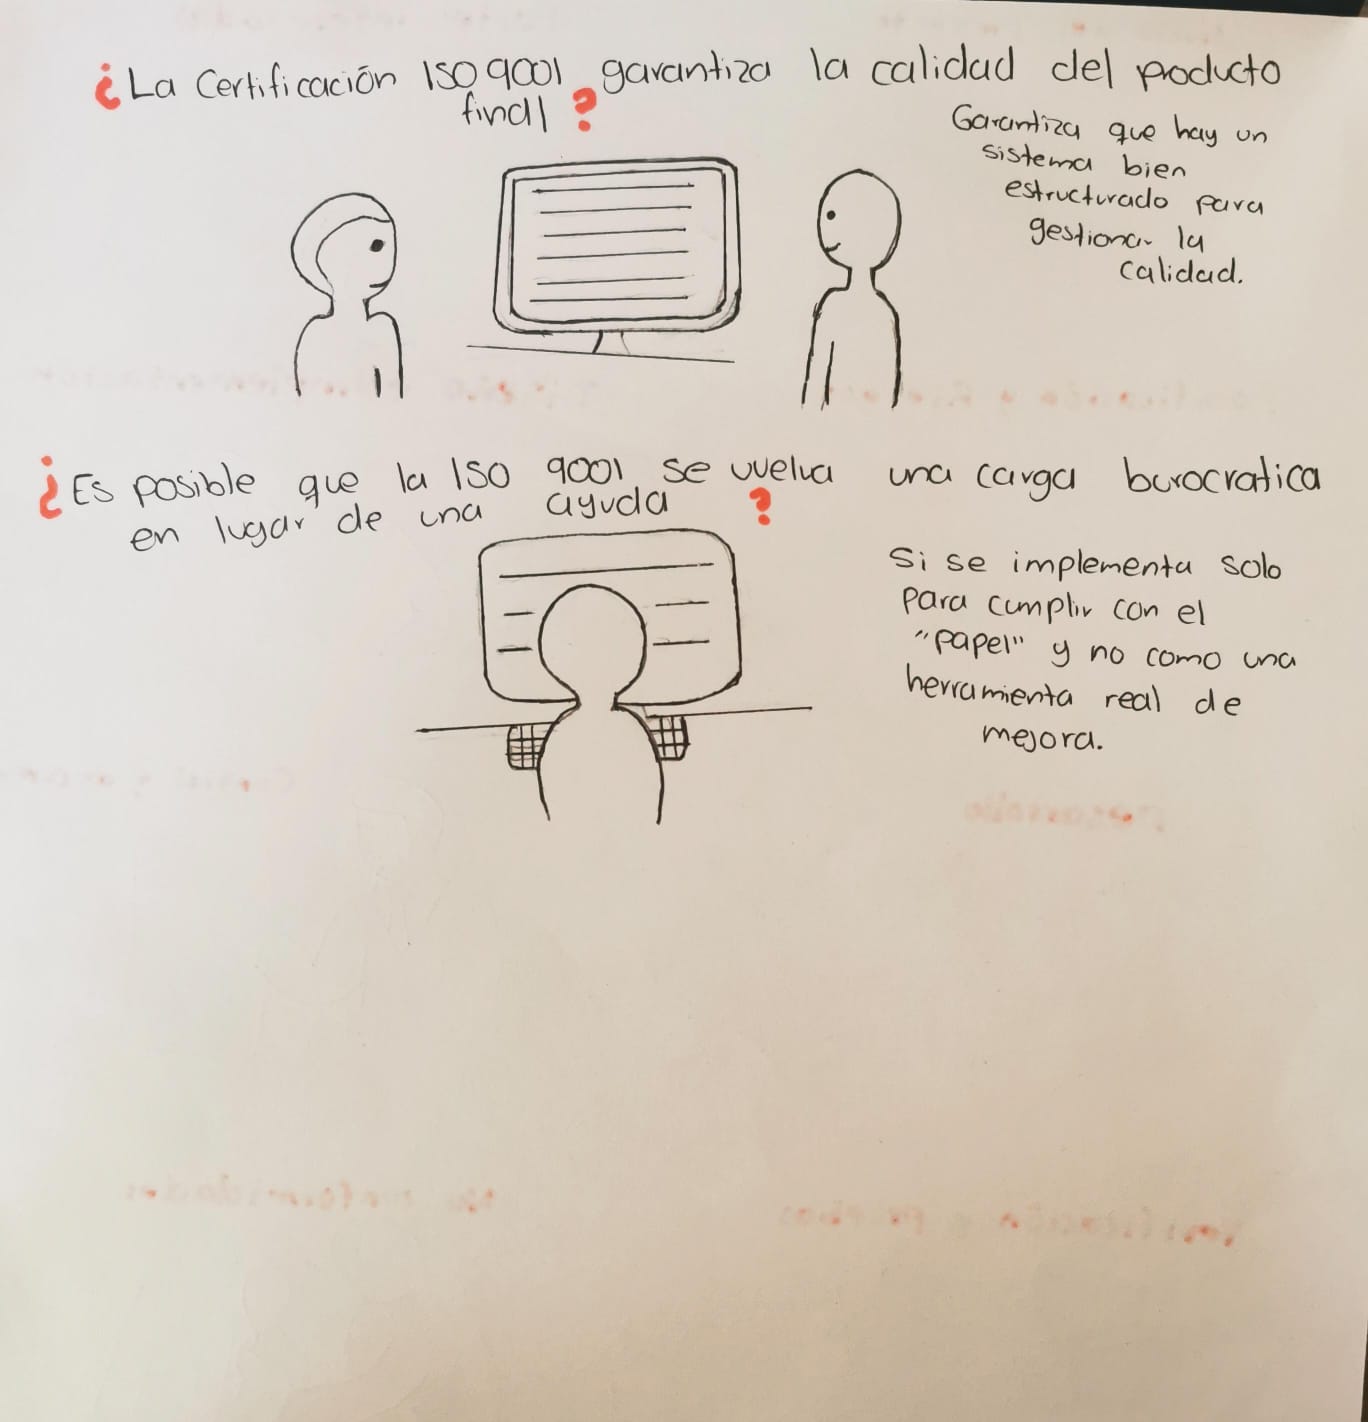 ¿La Certificación ISO 9001 garantiza la calidad del producto
final?
Garantiza que hay un
sistema bien
estructurado para
gestionar la
calidad.
¿Es posible que la ISO 9001 se vuelva una carga burocratica
en lugar de una ayuda ?
Si se implementa solo
para cumplir con el
"papel" y no como una
herramienta real de
mejora.